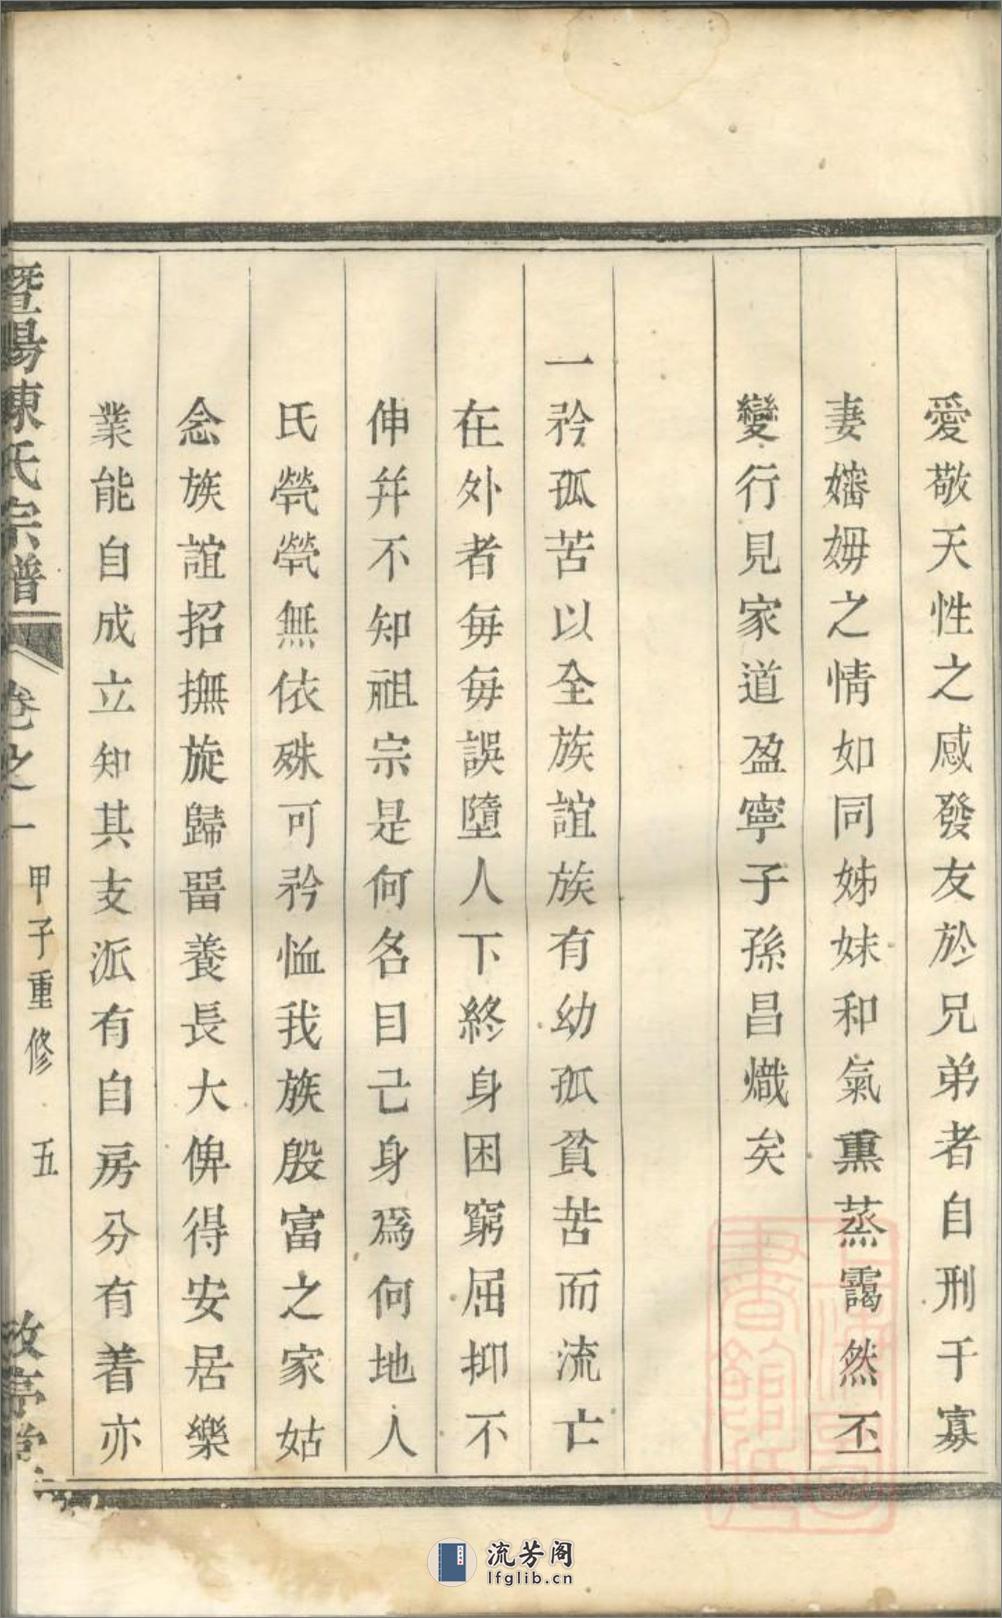 愛敬天性之感發友於兄弟者自刑于寡
妻嬸姆之情如同姊妹和氣熏蒸靄然丕
變行見家道盈寧子孫昌熾矣
一矜孤苦以全族誼族有幼孤貧苦而流亡
在外者每每誤墮人下終身困窮屈抑不
伸并不知祖宗是何名目己身爲何地人
氏煢煢無依殊可矜恤我族殷富之家姑
念族誼招撫旋歸畱養長大俾得安居樂
業能自成立知其支派有自房分有着亦
暨陽陳氏宗譜
卷之一
甲子重修
五
流芳阁
lfglib.cn